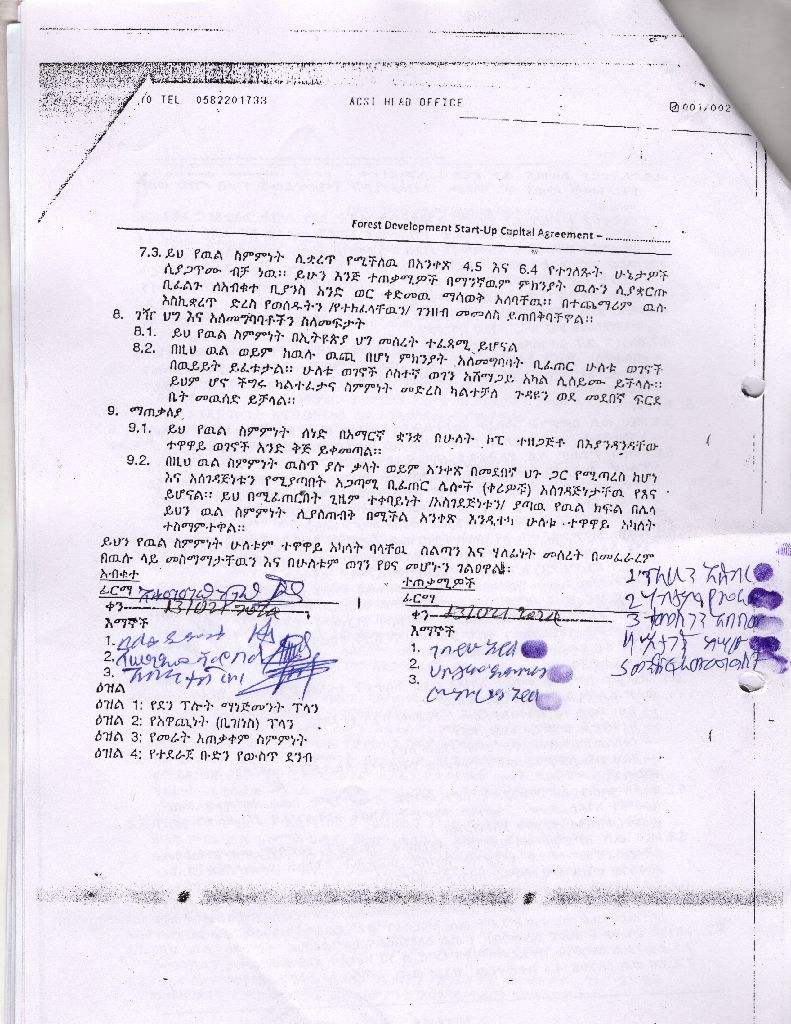 TEL 0582201733 ACSI HEAD OFFICE 001/002
Forest Development Start-Up Capital Agreement – .....................
7.3. ይህ የዉል ስምምነት ሊቋረጥ የሚችለዉ በአንቀጽ 4.5 እና 6.4 የተገለጹት ሁኔታዎች
ሲያጋጥሙ ብቻ ነዉ። ይሁን እንጅ ተጠቃሚዎች በማንኛዉም ምክንያት ዉሉን ሊያቋርጡ
ቢፈልጉ ለአብቁተ ቢያንስ አንድ ወር ቀድመዉ ማሳወቅ አለባቸዉ። በተጨማሪም ዉሉ
እስኪቋረጥ ድረስ የወሰዱትን /የተከፈላቸዉን/ ገንዘብ መመለስ ይጠበቅባቸዋል።
8. ገዥ ህግ እና አለመግባባቶችን ስለመፍታት
8.1. ይህ የዉል ስምምነት በኢትዩጵያ ህግ መሰረት ተፈጻሚ ይሆናል
8.2. በዚህ ዉል ወይም ከዉሉ ዉጪ በሆነ ምክንያት አለመግባባት ቢፈጠር ሁለቱ ወገኖች
በዉይይት ይፈቱታል። ሁለቱ ወገኖች ሶስተኛ ወገን አሸማጋይ አካል ሊሰይሙ ይችላሉ።
ይህም ሆኖ ችግሩ ካልተፈታና ስምምነት መድረስ ካልተቻለ ጉዳዩን ወደ መደበኛ ፍርድ
ቤት መዉሰድ ይቻላል።
9. ማጠቃለያ
9.1. ይህ የዉል ስምምነት ሰነድ በአማርኛ ቋንቋ በሁለት ኮፒ ተዘጋጅቶ በእያንዳንዳቸው
ተዋዋይ ወገኖች አንድ ቅጅ ይቀመጣል።
9.2. በዚህ ዉል ስምምነት ዉስጥ ያሉ ቃላት ወይም አንቀጽ በመደበኛ ህጉ ጋር የሚጣረስ ከሆነ
እና አስገዳጅነቱን የሚያጣበት አጋጣሚ ቢፈጠር ሌሎች (ቀሪዎች) አስገዳጅነታቸዉ የጸና
ይሆናል። ይህ በሚፈጠርበት ጊዜም ተቀባይነት /አስገዳጅነቱን/ ያጣዉ የዉል ክፍል በሌላ
ይህን ዉል ስምምነት ሊያስጠብቅ በሚችል አንቀጽ እንዲተካ ሁለቱ ተዋዋይ አካላት
ተስማምተዋል።
ይህን የዉል ስምምነት ሁለቱም ተዋዋይ አካላት ባላቸዉ ስልጣን እና ሃላፊነት መሰረት በመፈራረም
በዉሉ ላይ መስማማታቸዉን እና በሁለቱም ወገን የፀና መሆኑን ገልፀዋል።
አብቁተ
ተጠቃሚዎች
ፊርማ
ፊርማ
ቀን
ቀን
እማኞች
እማኞች
1.
2.
3.
1.
2.
3.
ዕዝል
ዕዝል 1: የደን ፕሎት ማኔጅመንት ፕላን
ዕዝል 2: የአዋጪነት (ቢዝነስ) ፕላን
ዕዝል 3: የመሬት አጠቃቀም ስምምነት
ዕዝል 4: የተደራጀ ቡድን የውስጥ ደንብ